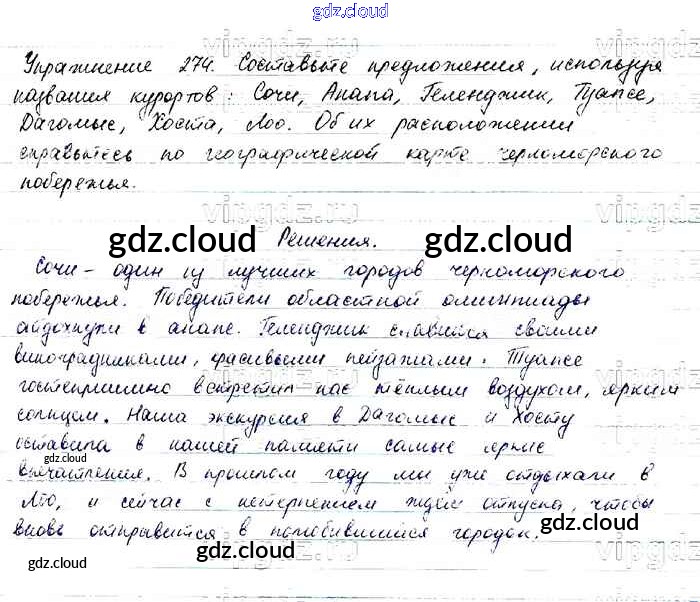 gdz.cloud
Упражнение 274. Составьте предложения, используя
названия курортов: Сочи, Анапа, Геленджик, Туапсе,
Дагомыс, Хоста, Лоо. Об их расположении
справьтесь по географической карте черноморского
побережья.
gdz.cloud Решения. gdz.cloud
Сочи – один из лучших городов черноморского
побережья. Победители областной олимпиады
отдохнули в анапе. Геленджик славится своими
виноградниками, красивыми пейзажами. Туапсе
гостеприимно встретил нас тёплым воздухом, ярким
солнцем. Наша экскурсия в Дагомыс и Хосту
оставила в нашей памяти самые яркие
gdz.cloud
впечатления. В прошлом году мы уже отдыхали в
Лоо, и сейчас с нетерпением ждём отпуска, чтобы
вновь отправится в полюбившийся городок.
gdz.cloud gdz.cloud gdz.cloud
vipgdz